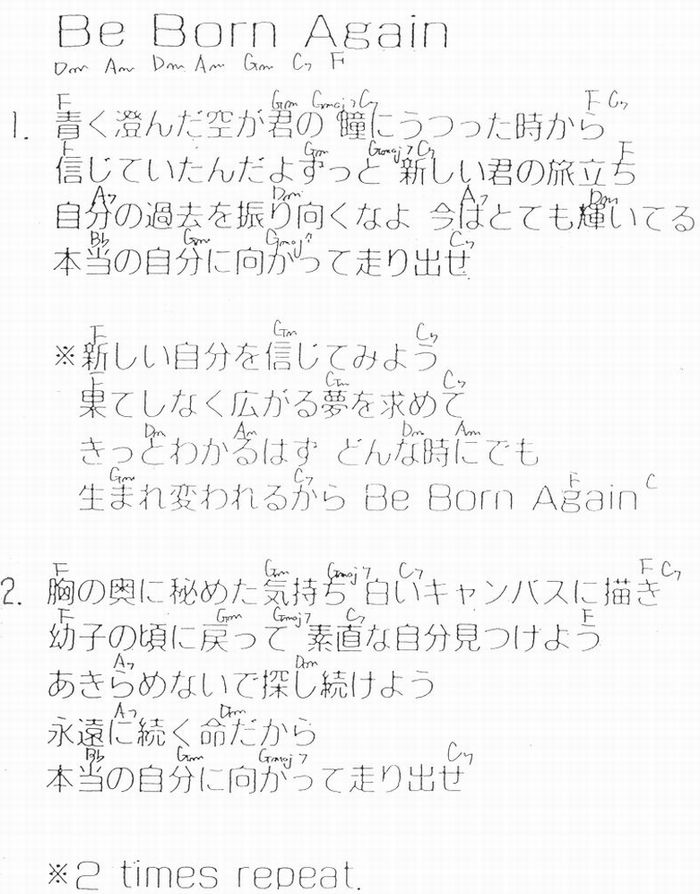 Be Born Again
Dm Am Dm Am Gm C7 F
F Gm Gmaj7 C7 F C7
1. 青く澄んだ空が君の 瞳にうつった時から
F Gm Gmaj7 C7 F
信じていたんだよずっと 新しい君の旅立ち
A7 Dm A7 Dm
自分の過去を振り向くなよ 今はとても輝いてる
Bb Gm Gmaj7 C7
本当の自分に向かって走り出せ
F Gm C7
※新しい自分を信じてみよう
F Gm C7
果てしなく広がる夢を求めて
Dm Am Dm Am
きっとわかるはず どんな時にでも
Gm C7 F C
生まれ変われるから Be Born Again
F Gm Gmaj7 C7 F C7
2. 胸の奥に秘めた気持ち 白いキャンバスに描き
F Gm Gmaj7 C7 F
幼子の頃に戻って 素直な自分見つけよう
A7 Dm
あきらめないで探し続けよう
A7 Dm
永遠に続く命だから
Bb Gm Gmaj7 C7
本当の自分に向かって走り出せ
※2 times repeat.